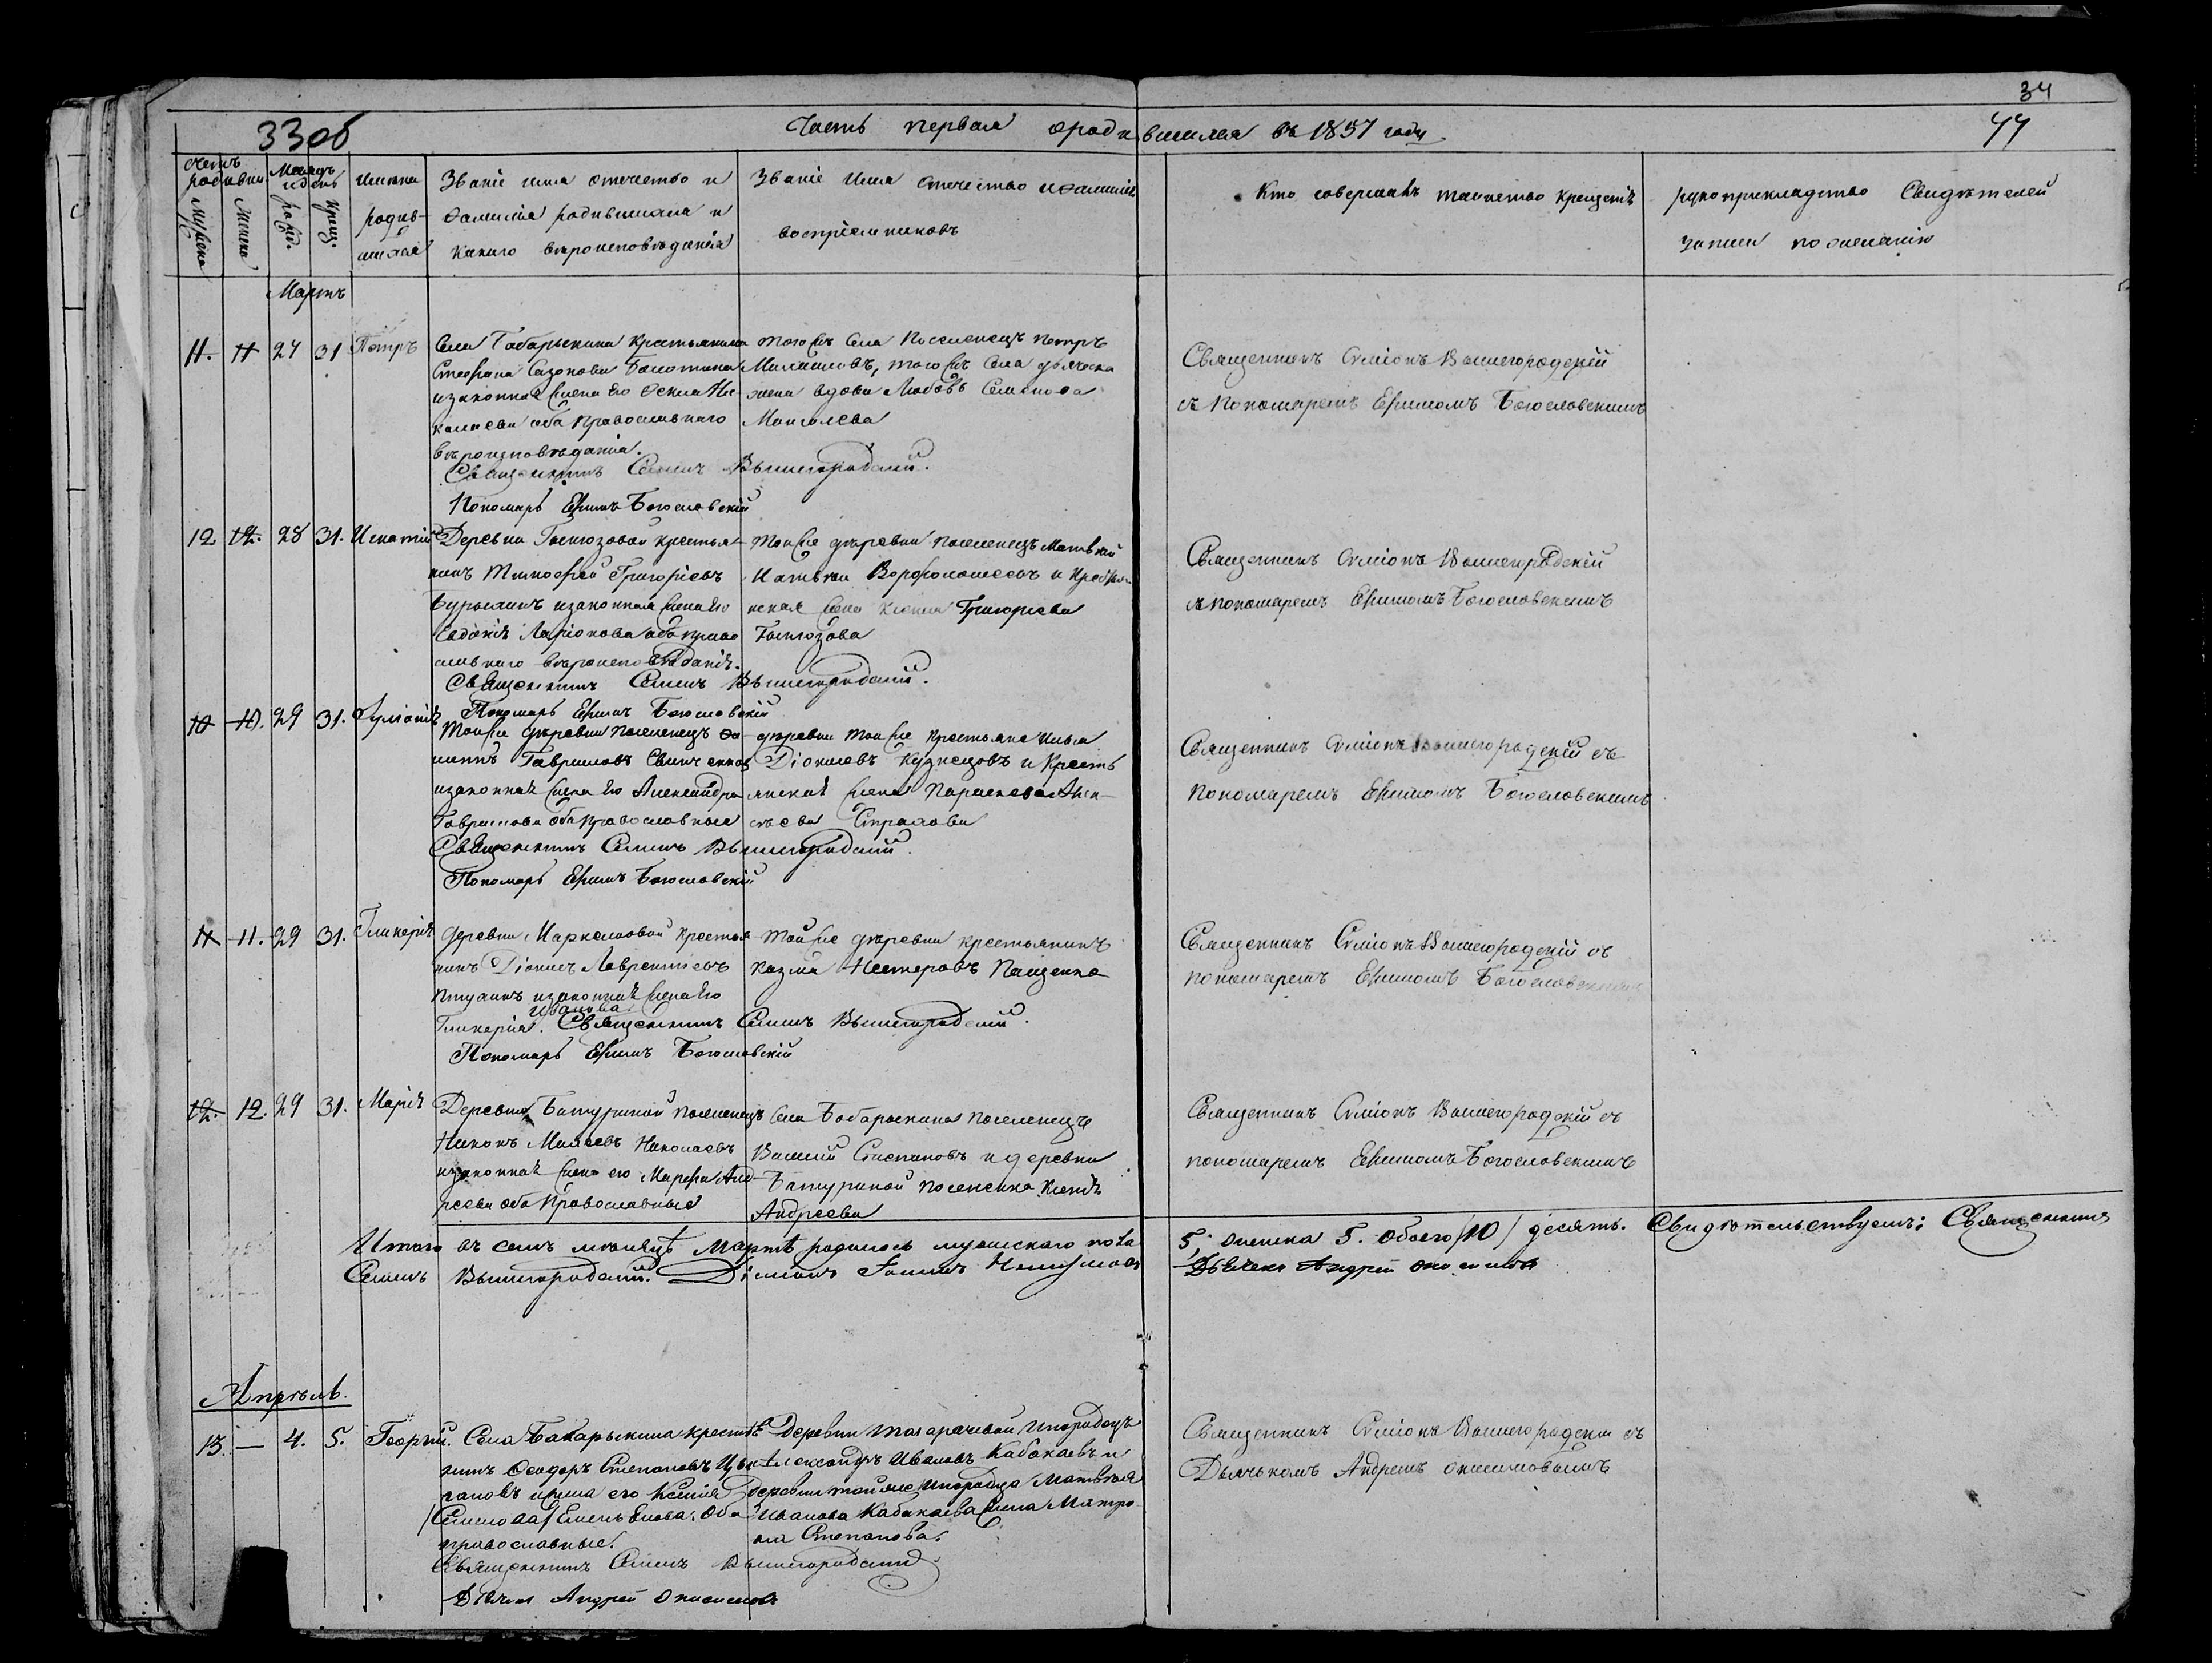 34
33 об
Часть первая о родившихся въ 1857 году
44
Счетъ родивши
Мужеска
Женска
Месяцъ и день
рожд.
крещ.
Имена
родив-
шихся
Званіе имя отечество и
фамилія родившихъ и
какого вѣроисповѣданія
Званіе Имя Отечество и фамилія
воспріемниковъ
Кто совершалъ таинство крещенія
рукоприкладство Свидѣтелей
записи по желанію
Мартъ
11. 11 27 31 Петръ
Села Табарыкина Крестьянина
Стефана Сазонова
и законная жена его
оба Православнаго
вѣроисповѣданія.
Священникъ Симеонъ Вышегородскій.
Пономарь Ефимъ Богословскій
того же Села Поселенецъ Петръ
того же Села
жена вдова Любовь Семенова
Священникъ Симіонъ Вышегородскій
съ Пономаремъ Ефимомъ Богословскимъ
12 12. 28 31. Игнатій
Деревни крестья-
нинъ Тимофей Григорьевъ
и законная жена его
Евдокія Ларіонова оба право
славнаго вѣроисповѣданія.
Священникъ Симеонъ Вышегородскій.
Пономарь Ефимъ Богословскій
Той же деревни поселенецъ Матвѣй
и крестьян-
ская жена Ксенія Григорьева
Священникъ Симіонъ Вышегородскій
съ пономаремъ Ефимомъ Богословскимъ
10 10. 29 31.
Той же деревни поселенецъ
Гавриловъ
и законная жена его Александра
Гаврилова оба православные
Священникъ Симеонъ Вышегородскій.
Пономарь Ефимъ Богословскій
деревни той же крестьяне Илья
Діонисьевъ Кузнецовъ и Кресть
янская жена Параскева
Страхова
Священникъ Симіонъ Вышегородскій съ
Пономаремъ Ефимомъ Богословскимъ
11 11. 29 31. Гликерія
деревни Маркеловой крестья
нинъ Діонисъ Лаврентьевъ
и законная жена его
Иванова
Гликерія. Священникъ Симеонъ Вышегородскій.
Пономарь Ефимъ Богословскій
Той же деревни крестьянинъ
Козма Нестеровъ Пащенко
Священникъ Симіонъ Вышегородскій съ
пономаремъ Ефимомъ Богословскимъ
12. 12. 29 31. Марія
Деревни Батуриной поселенецъ
Никонъ Николаевъ
и законная жена его Марфа Анд-
реева оба Православные
Села Бобарыкина поселенецъ
Василій Степановъ и деревни
Батуриной поселенка Ксенія
Андреева
Священникъ Симіонъ Вышегородскій съ
пономаремъ Ефимомъ Богословскимъ
Итого въ семъ мѣсяцѣ Мартѣ родилось мужескаго пола 5, женска 5. обоего /10/ десять. Свидѣтельствуемъ: Священникъ
Симеонъ Вышегородскій. Діаконъ Іоаннъ Дьячекъ Андрей Онисимовъ
Апрѣль.
13. — 4. 5. Георгій.
Села Бабарыкина крестья
нинъ Феодоръ Степановъ Цы
гановъ и жена его Ксенія
/Симеонова/ Емельянова. Оба
православные.
Священникъ Симеонъ Вышегородскій
Дьячекъ Андрей Онисимовъ
Деревни Тагарачевой Инородецъ
Александръ Ивановъ Кабакаевъ и
деревни той же Инородца Матвѣя
Иванова Кабакаева жена Матро
на Степанова.
Священникъ Симіонъ Вышегородскій съ
Дьячькомъ Андреемъ Онисимовымъ